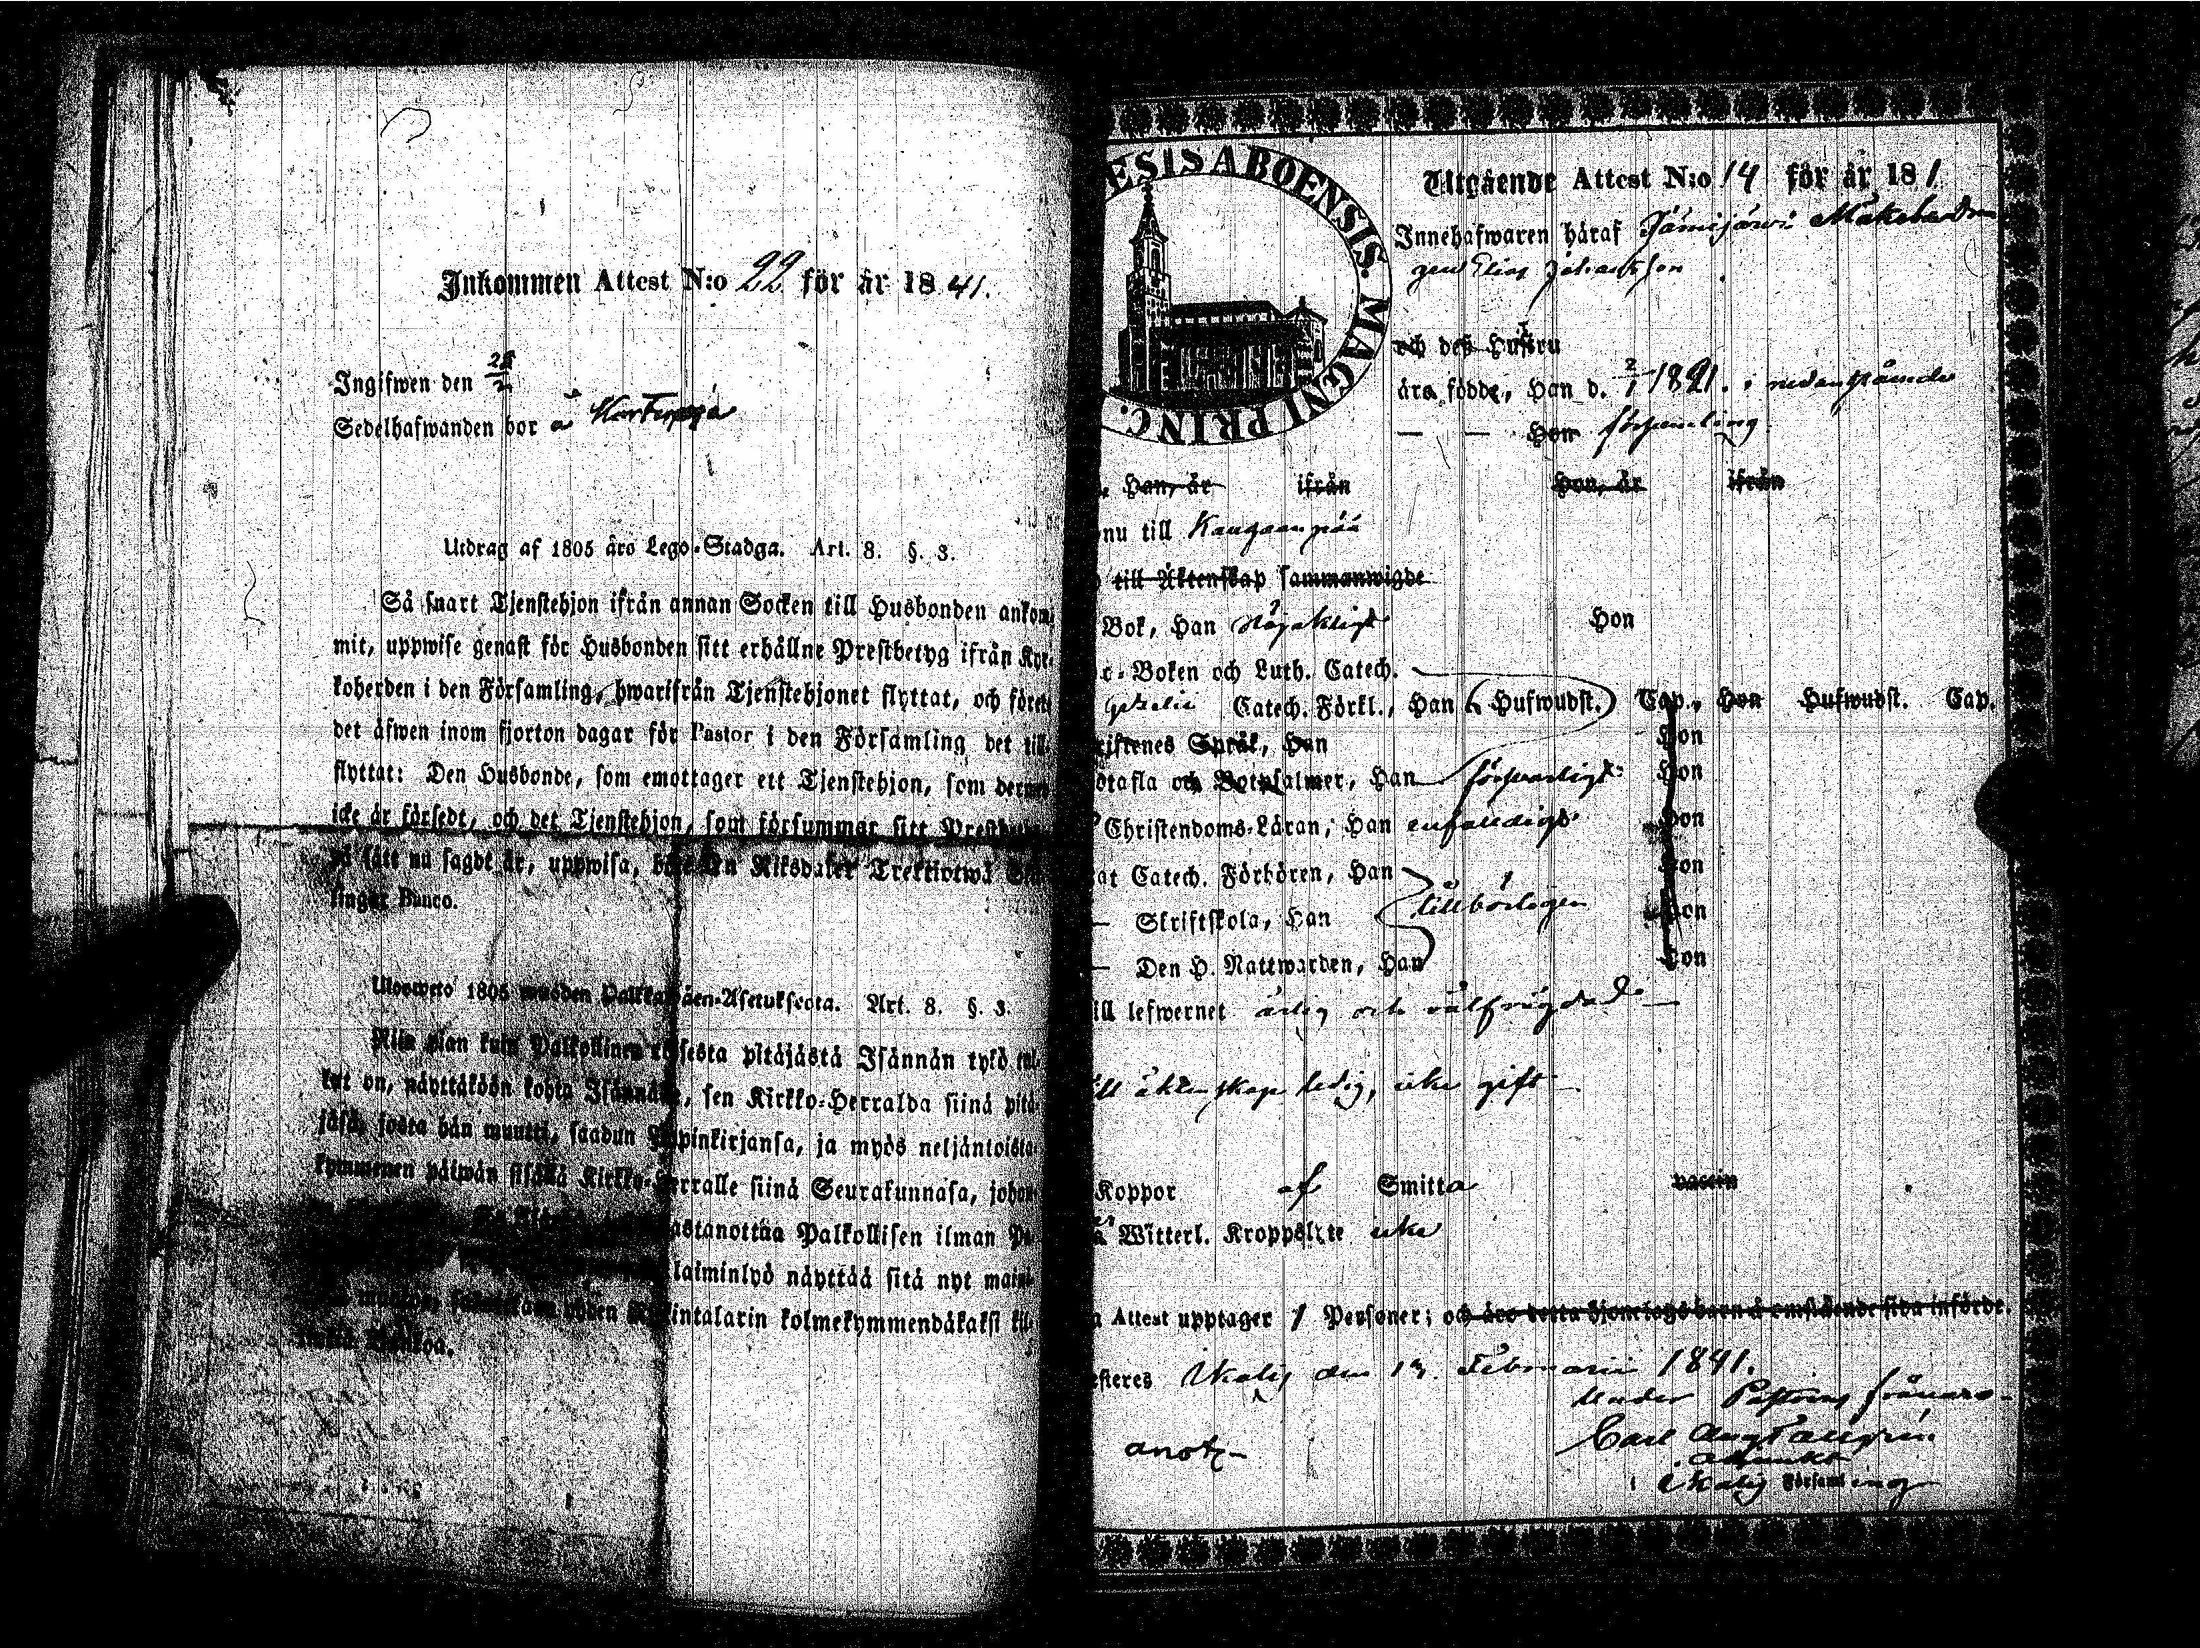 Inkommen Attest N:o 22 för år 1841.
Ingifwen den
Sedelhafwanden bor å
Utdrag af 1805 års Lego-Stadga. Art. 8. §. 3.
Så snart Tjenstehjon ifrån annan Socken till Husbonden ankom-
mit, uppwise genast för Husbonden sitt erhållne Prestbetyg ifrån Kyr-
koherden i den Församling, hwarifrån Tjenstehjonet flyttat, och förete
det äfwen inom fjorton dagar för Pastor i den Församling det till-
flyttat: Den Husbonde, som emottager ett Tjenstehjon, som dermed
icke är försedt, och det Tjenstehjon, som försummar sitt
på sätt nu sagdt är, uppwisa, Riksdaler Trettiotwå
lingar Banco.
1805 wuoden Palkka Asetuksesta. Art. 8. §. 3.
Niin pian kuin Palkollinen toisesta pitäjästä Isännän tykö tul-
lut on, näyttäköön kohta Isännälle, sen Kirkko-Herralda siinä pitä-
jäsä, josta hän muutti, saadun Papinkirjansa, ja myös neljäntoista-
kymmenen päiwän sisällä Kirkko-Herralle siinä Seurakunnasa, johon
astanottaa Palkollisen ilman
laiminlyö näyttää sitä nyt
intalarin kolmekymmendäkaksi kil-
ESIS ABOENSIS. MAGNI PRINC.
Utgående Attest N:o 14 för år 181
Innehafwaren häraf Jämijärwi
gen Elias Johansson
och dess Hustru
äro födde, Han d. 2/1 1821. i nedanstående
— — Hon församling.
Han, år ifrån Hon, år ifrån
nu till Kangaanpää
till Äktenskap sammanwigde
Bok, Han Hon
c-Boken och Luth. Catech.
Catech. Förkl., Han (Hufwudst.) Cap., Hon Hufwudst. Cap.
riftenes Språk, Han Hon
stafla och Botpsalmer, Han försvarligt Hon
Christendoms-Läran, Han enfaldigt Hon
at Catech. Förhören, Han Hon
— Skriftskola, Han tillbörligen Hon
— Den H. Nattwarden, Han Hon
ill lefwernet ärlig och välfrägdad —
ill äktenskap ledig, icke gift —
Koppor af Smitta vaccin
Witterl. Kroppslyte icke
a Attest upptager 1 Personer; och äro detta hjonelags barn å omstående sida införde.
esteres Ikalis den 13. Februarii 1841.
Under Pastoris frånvaro
Carl Aug
Adjunkt
i Ikalis Församling
anot.